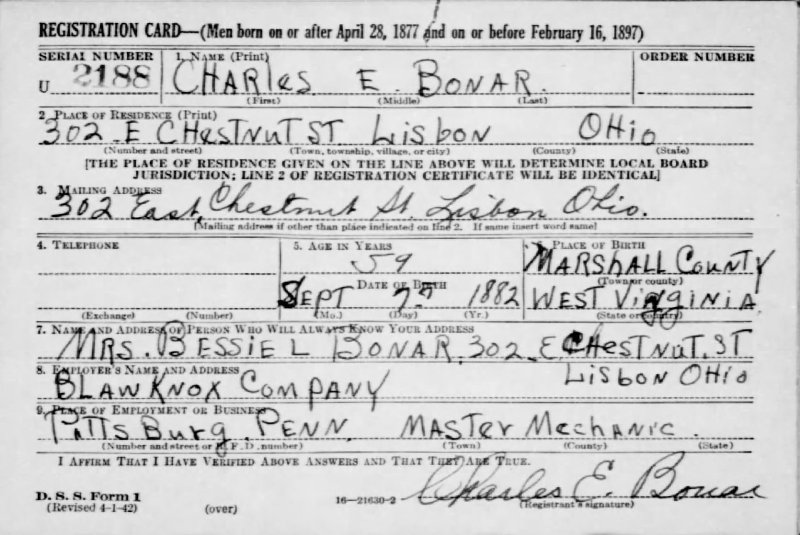 REGISTRATION CARD—(Men born on or after April 28, 1877 and on or before February 16, 1897)
SERIAL NUMBER 1. NAME (Print) ORDER NUMBER
U 2188 CHARLES E. BONAR.
(First) (Middle) (Last)
2. PLACE OF RESIDENCE (Print)
302 E CHESTNUT ST LISBON OHIO
(Number and street) (Town, township, village, or city) (County) (State)
[THE PLACE OF RESIDENCE GIVEN ON THE LINE ABOVE WILL DETERMINE LOCAL BOARD
JURISDICTION; LINE 2 OF REGISTRATION CERTIFICATE WILL BE IDENTICAL]
3. MAILING ADDRESS
302 East Chestnut St. Lisbon Ohio.
[Mailing address if other than place indicated on line 2. If same insert word same]
4. TELEPHONE 5. AGE IN YEARS PLACE OF BIRTH
59 MARSHALL COUNTY
DATE OF BIRTH (Town or county)
SEPT 1882 WEST VIRGINIA
(Exchange) (Number) (Mo.) (Day) (Yr.) (State or country)
7. NAME AND ADDRESS OF PERSON WHO WILL ALWAYS KNOW YOUR ADDRESS
MRS. BESSIE L BONAR. 302 E CHESTNUT. ST
8. EMPLOYER'S NAME AND ADDRESS LISBON OHIO
BLAW KNOX COMPANY
9. PLACE OF EMPLOYMENT OR BUSINESS
PITTSBURG. PENN. MASTER MECHANIC.
(Number and street or R. F. D. number) (Town) (County) (State)
I AFFIRM THAT I HAVE VERIFIED ABOVE ANSWERS AND THAT THEY ARE TRUE.
D. S. S. Form 1
(Revised 4-1-42) (over) 16—21630-2 Charles E. Bonar
(Registrant's signature)